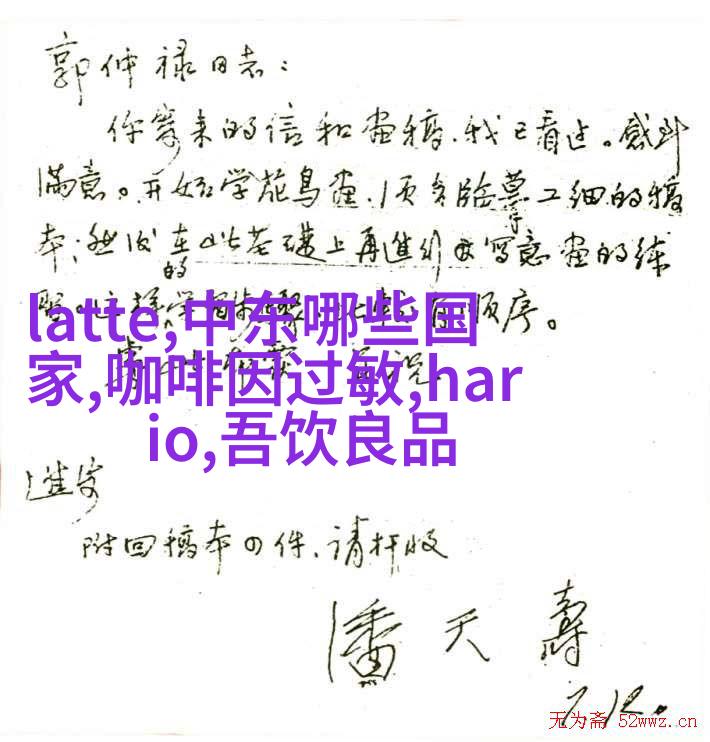 郭仲禄同志：
你寄来的信和画稿，我已看过。感到
满意。开始学花鸟画，须多临摹工细的稿
本；然后在此基础上再进行写意画的练
的
latte,中东哪些国
家,咖啡因过敏,har
io,吾饮良品
顺序。
进安
附回稿本四件，请检收
潘天寿
7.12.
无为斋 52wwz.cn